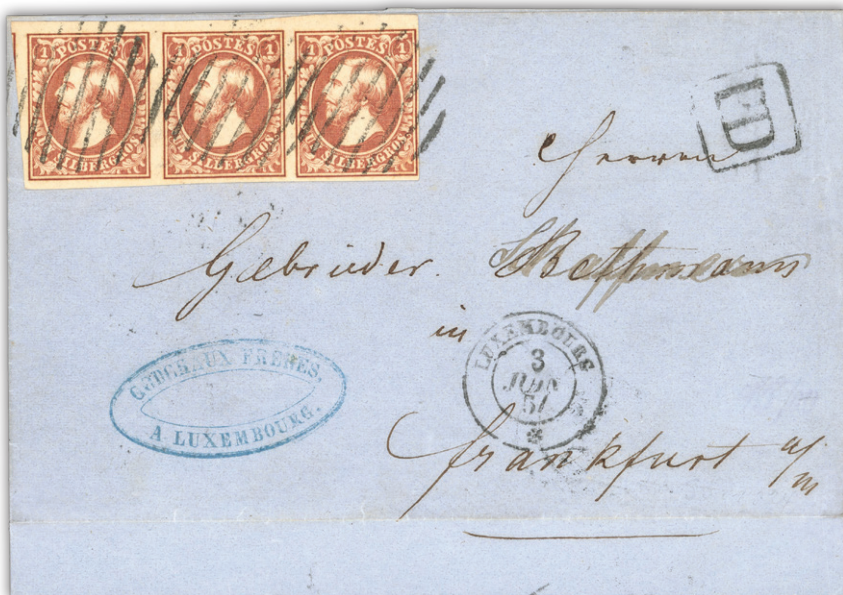 1 POSTES 1
UN SILBERGROS
1 POSTES 1
UN SILBERGROS
1 POSTES 1
UN SILBERGROS
PD
Herren
Gebrüder Bethmann
in
LUXEMBOURG
3
JUIN
Frankfurt a/m
FRERES,
A LUXEMBOURG.